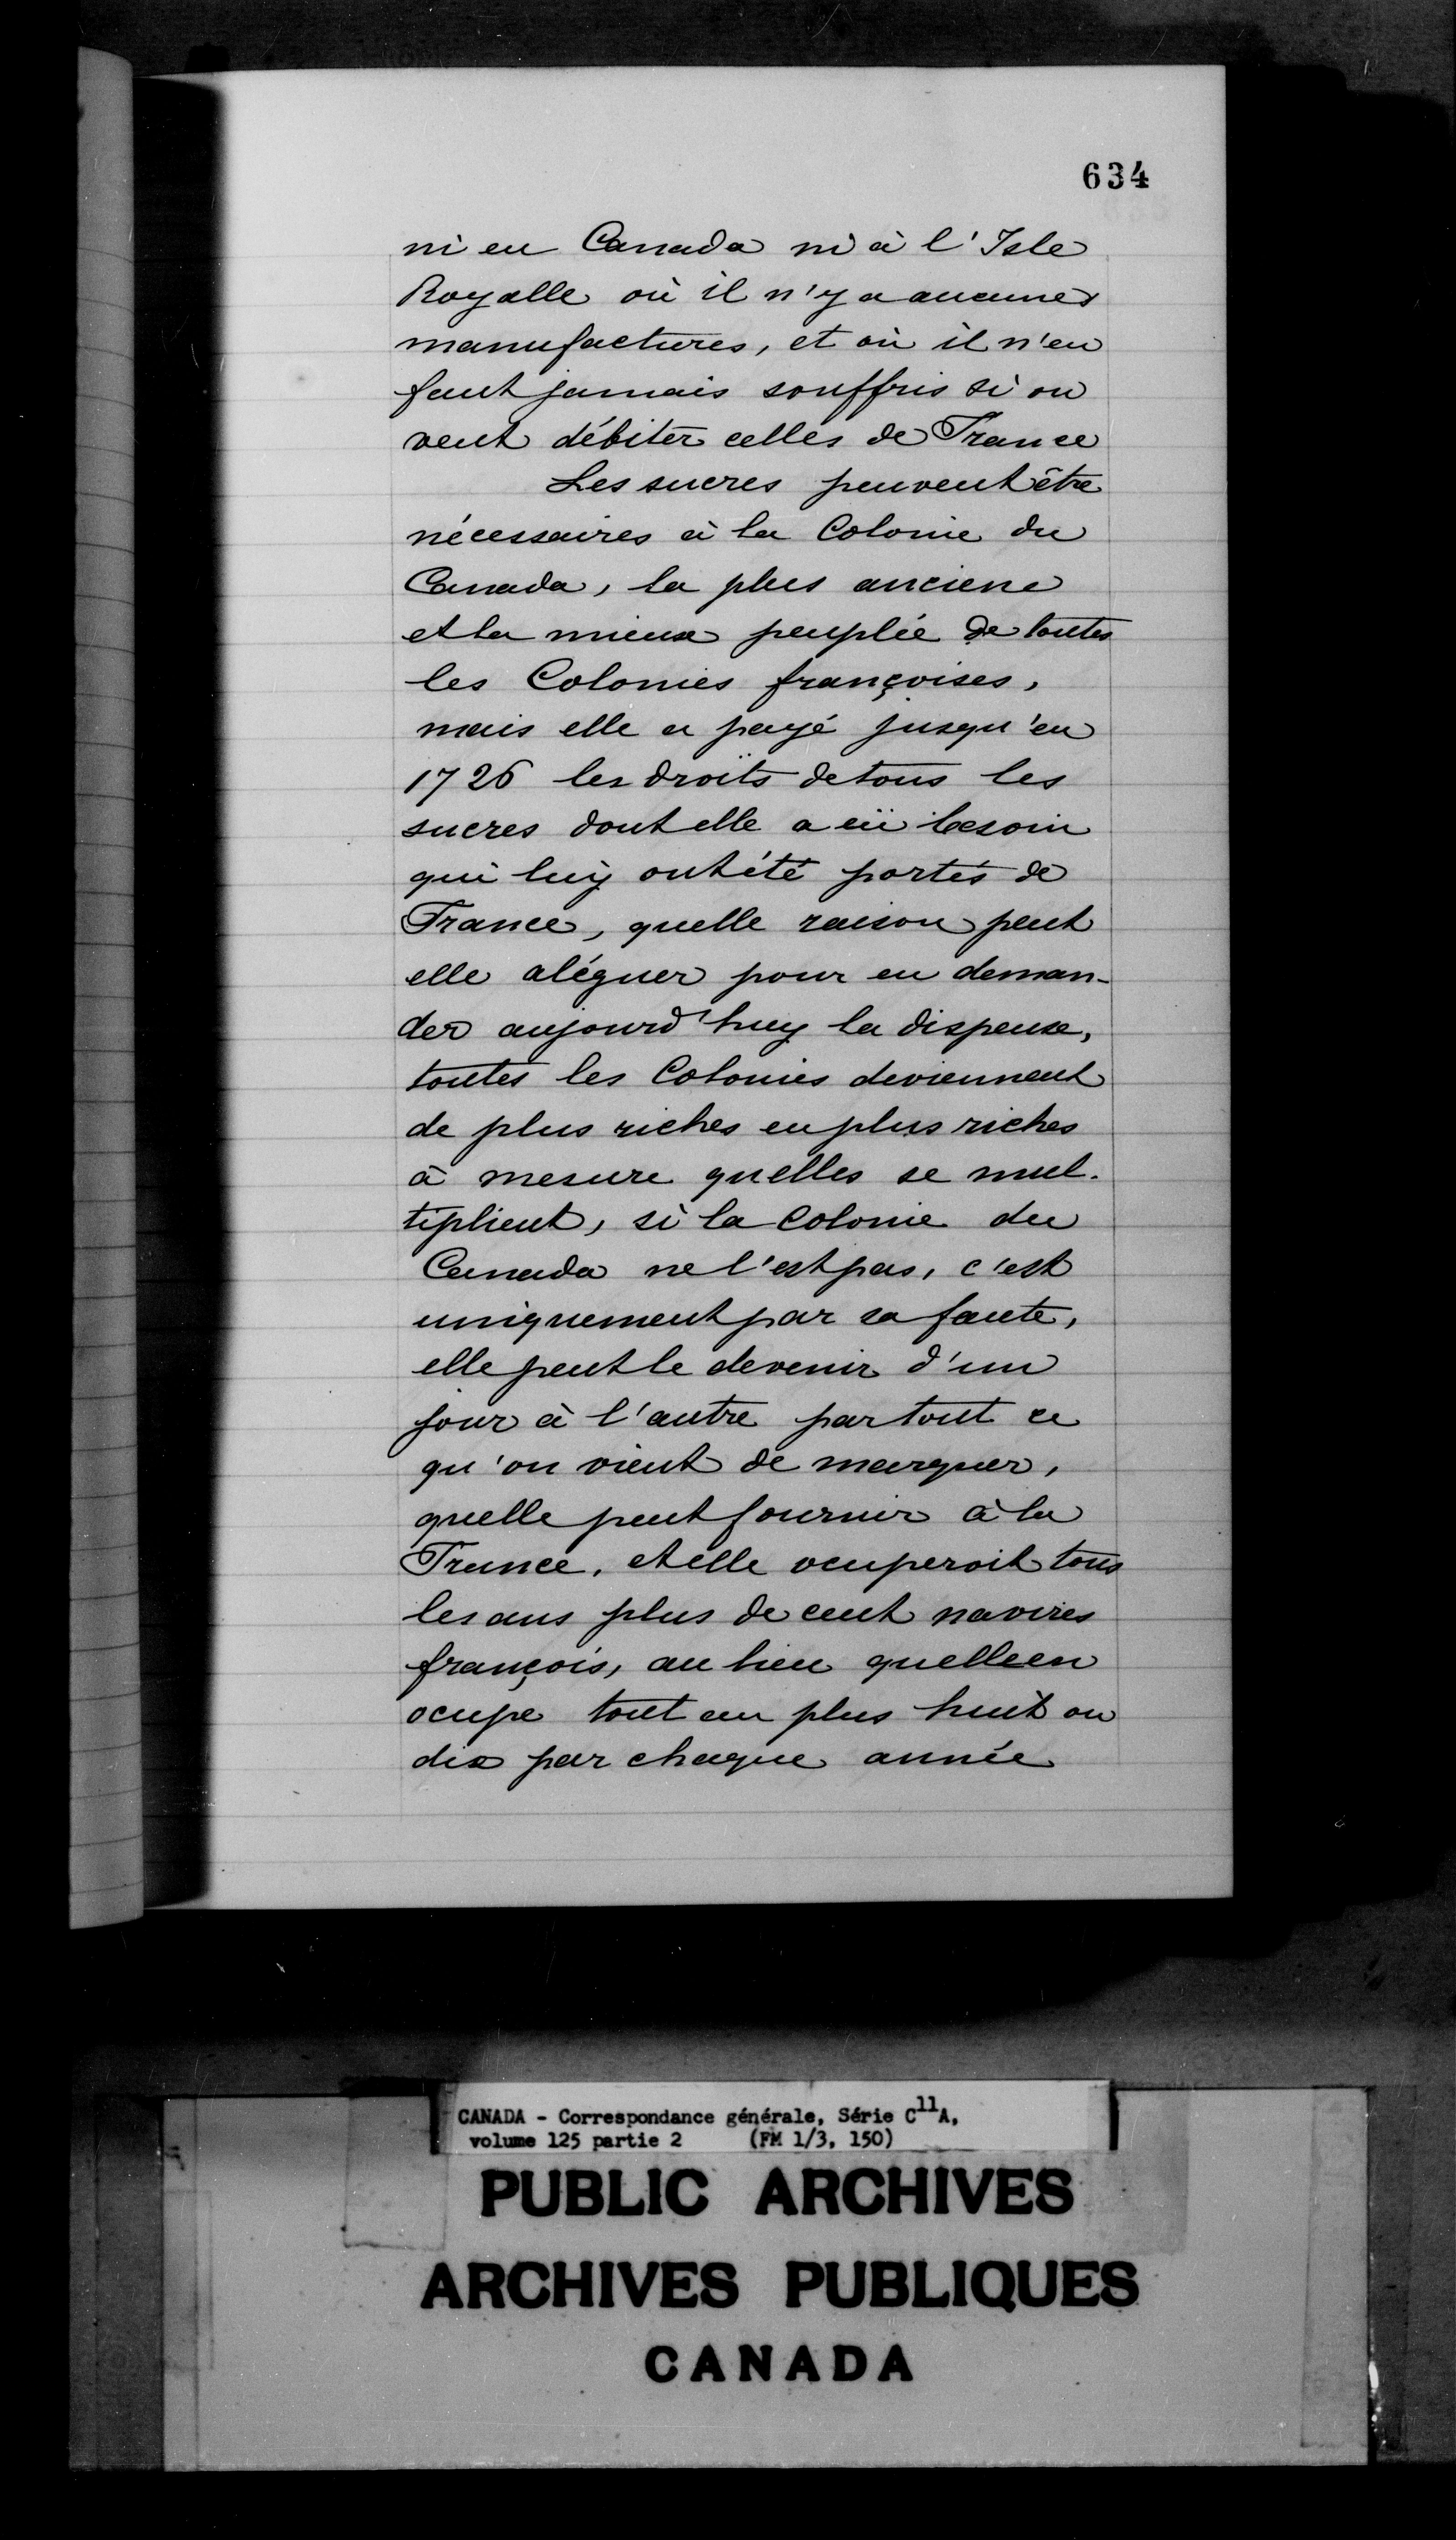 634
ni en Canada ni à l'Isle
Royalle où il n'y a aucunes
manufactures, et où il n'en
faut jamais souffris si on
veut débiter celles de France
Les sucres peuvent être
nécessaires à la Colonie du
Canada, la plus anciene
et la mieux peuplée de toutes
les Colonies françoises,
mais elle a payé jusqu'en
1726 les droits de tous les
sucres dont elle a eü besoin
qui luy ont été portés de
France, quelle raison peut
elle aléguer pour en deman-
der aujourd'huy la dispense,
toutes les Colonies deviennent
de plus riches en plus riches
à mesure quelles se mul-
tiplient, si la Colonie du
Canada ne l'est pas, c'est
uniquement par sa faute,
elle peut le devenir d'un
jour à l'autre par tout ce
qu'on vient de marquer,
quelle peut fournir à la
France, et elle ocuperoit tous
les ans plus de cent navires
françois, au lieu quelle en
ocupe tout au plus huit ou
dix par chaque année
CANADA - Correspondance générale, Série C11A,
volume 125 partie 2 (FM 1/3, 150)
PUBLIC ARCHIVES
ARCHIVES PUBLIQUES
CANADA